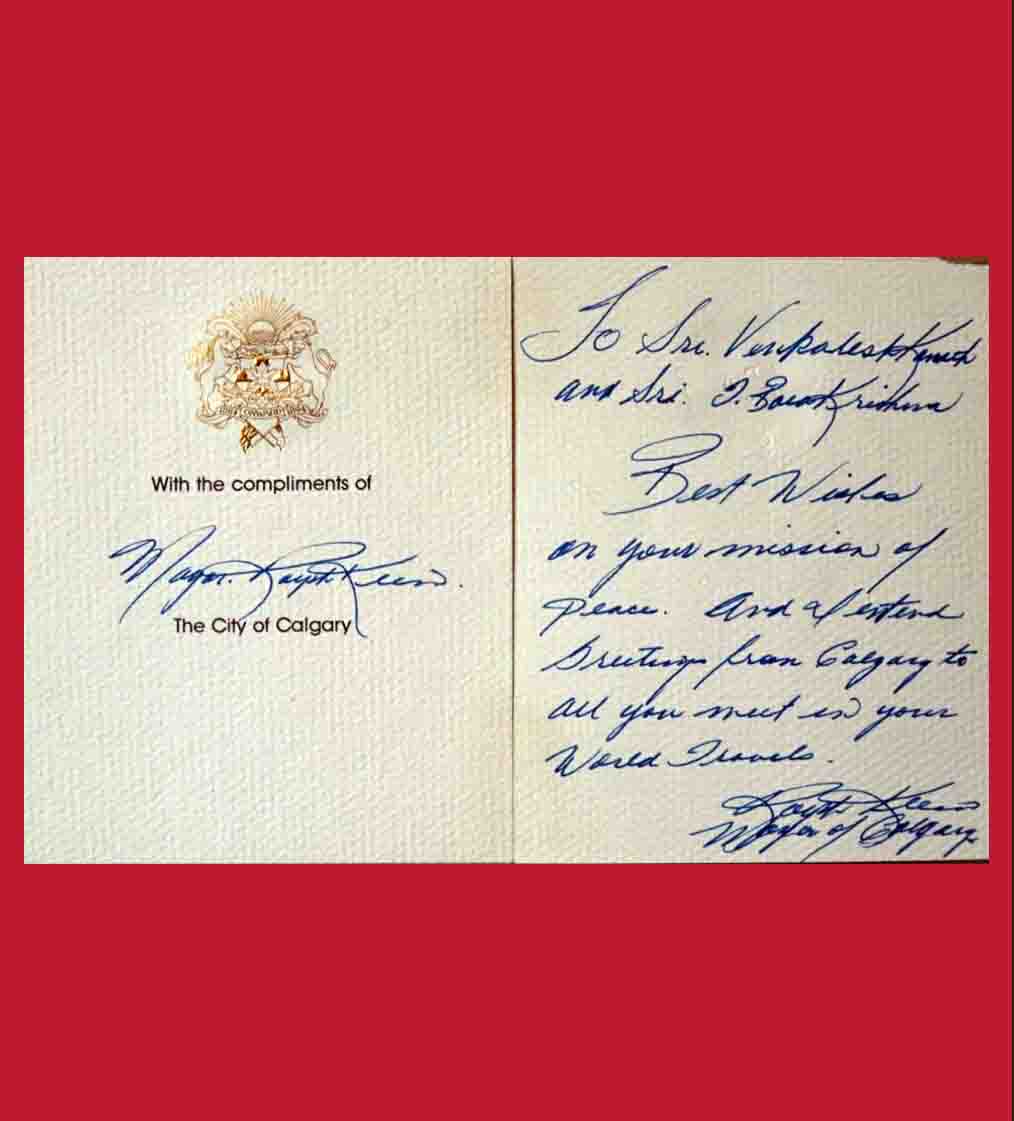 With the compliments of
Mayor. Ralph Klein.
The City of Calgary
To Sri. Venkatesh Kamath
and Sri. T. BalaKrishna
Best Wishes
on your mission of
peace. And I extend
Greetings from Calgary to
all you meet in your
World Travels.
Ralph Klein
Mayor of Calgary